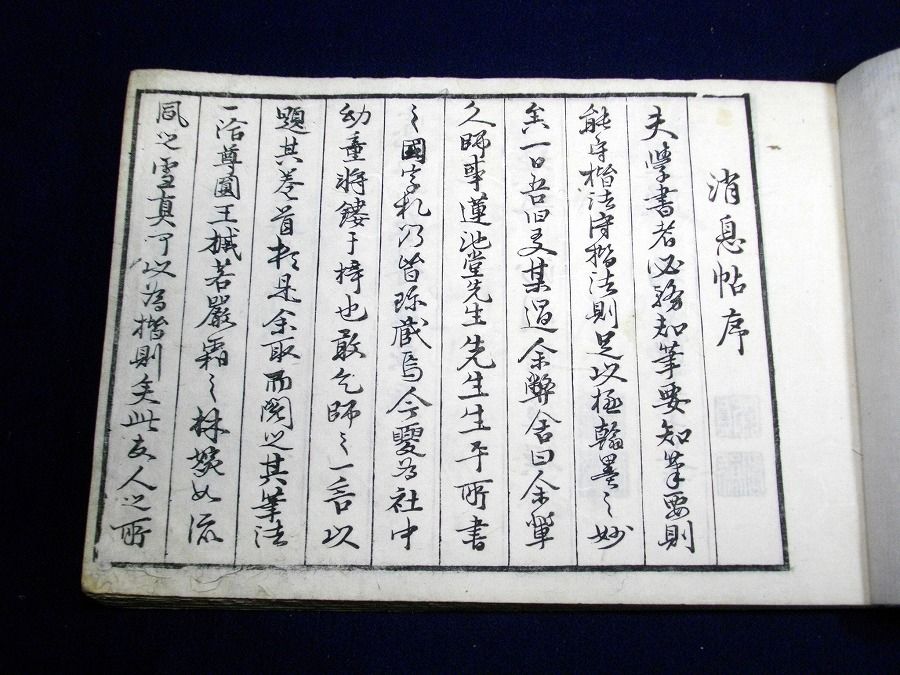 消息帖序
夫學書者必務知筆要知筆要則
能守楷法守楷法則足以極翰墨之妙
矣一日吾旧友某過余弊舎曰余輩
久師事蓮池堂先生先生生平所書
之國字札乃皆珎蔵焉今要為社中
幼童将鏤于梓也敢乞師之一言以
題其巻首於是余取而閲之其筆法
一浩尊圓王搣若嚴霜之林婉如流
風之雪真可以為楷則矣此友人之所